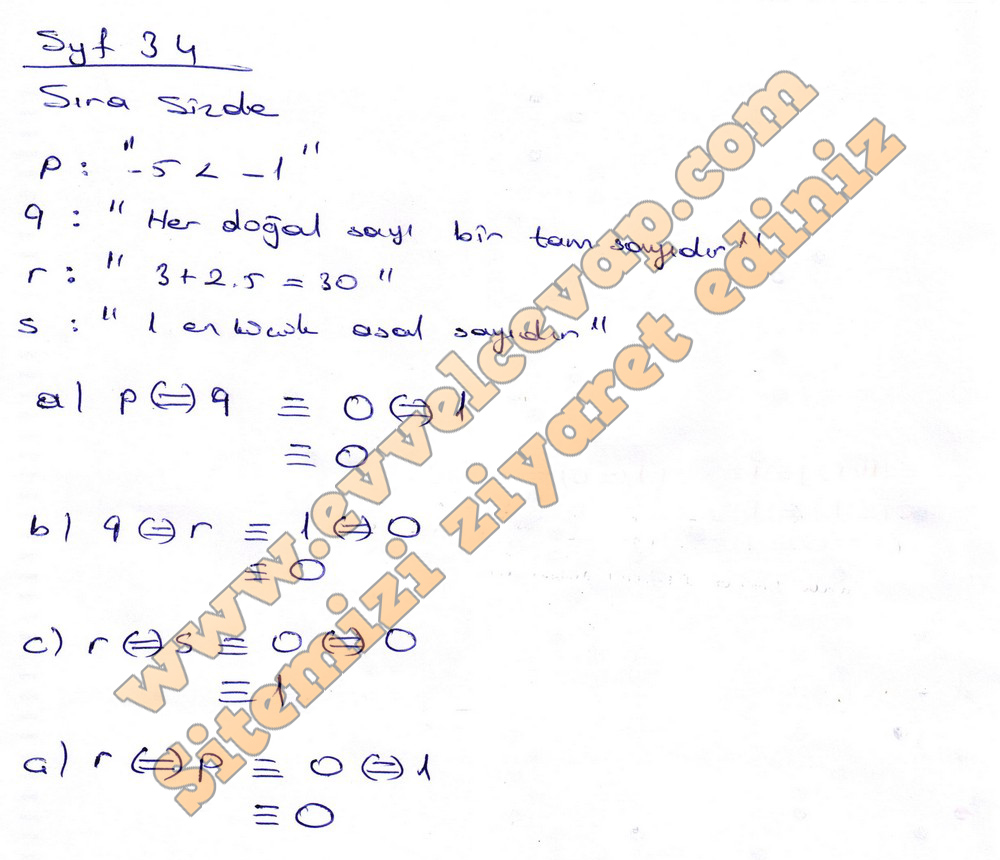 Syf 34
Sıra Sizde
p : "-5 < -1"
q : " Her doğal sayı bir tam sayıdır"
r : " 3+2.5 = 30 "
s : " 1 en küçük asal sayıdır"
a) p ⇔ q ≡ 0 ⇔ 1
≡ 0
b) q ⇔ r ≡ 1 ⇔ 0
≡ 0
c) r ⇔ s ≡ 0 ⇔ 0
≡ 1
a) r ⇔ p ≡ 0 ⇔ 1
≡ 0
www.evvelcevap.com
Sitemizi ziyaret ediniz